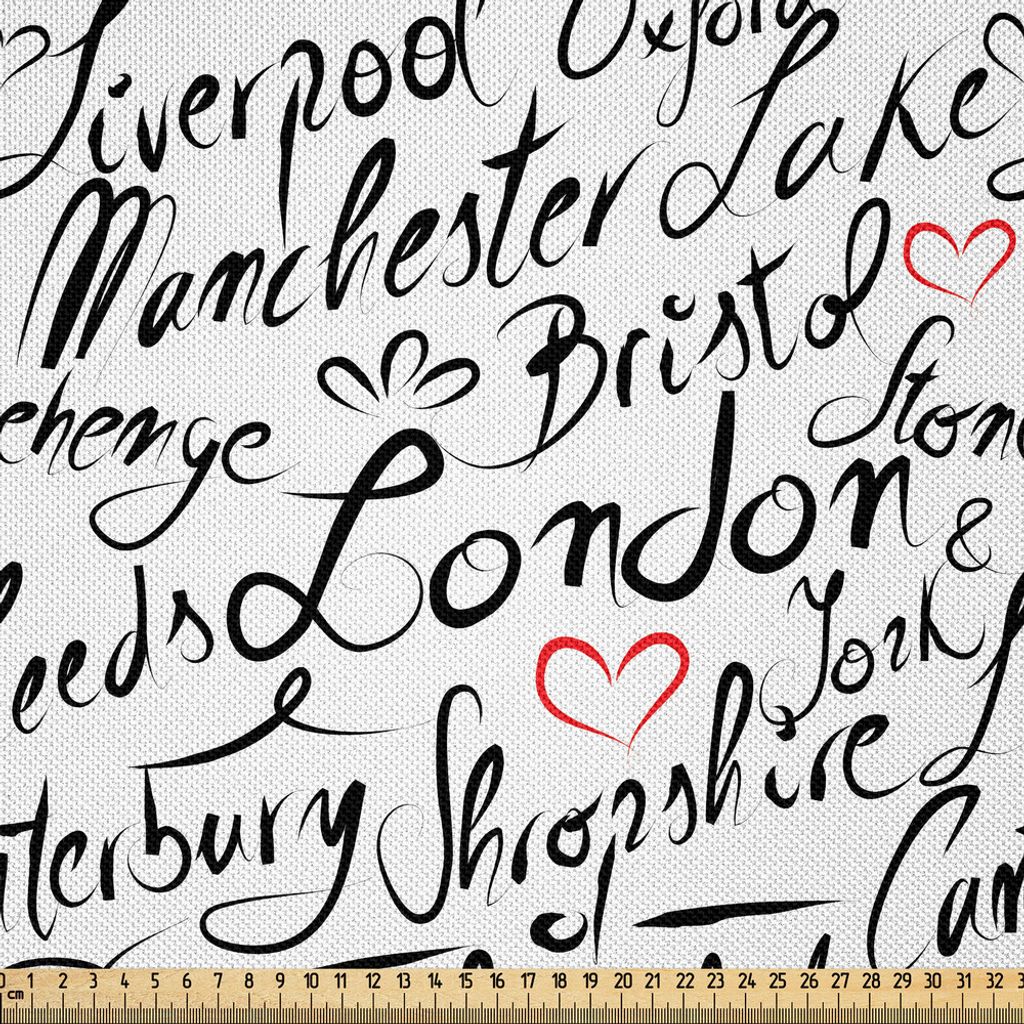 Liverpool Oxford
Manchester Lake
Bristol
ehenge Ston
London &
eeds York
Shropshire
terbury Can
0 1 2 3 4 5 6 7 8 9 10 11 12 13 14 15 16 17 18 19 20 21 22 23 24 25 26 27 28 29 30 31 32 3
cm